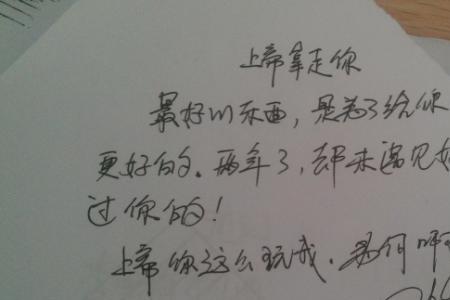 上帝拿走你
最好的东西，是为了给你
更好的。两年了，却未遇见好
过你的！
上帝你这么玩我，为何啊